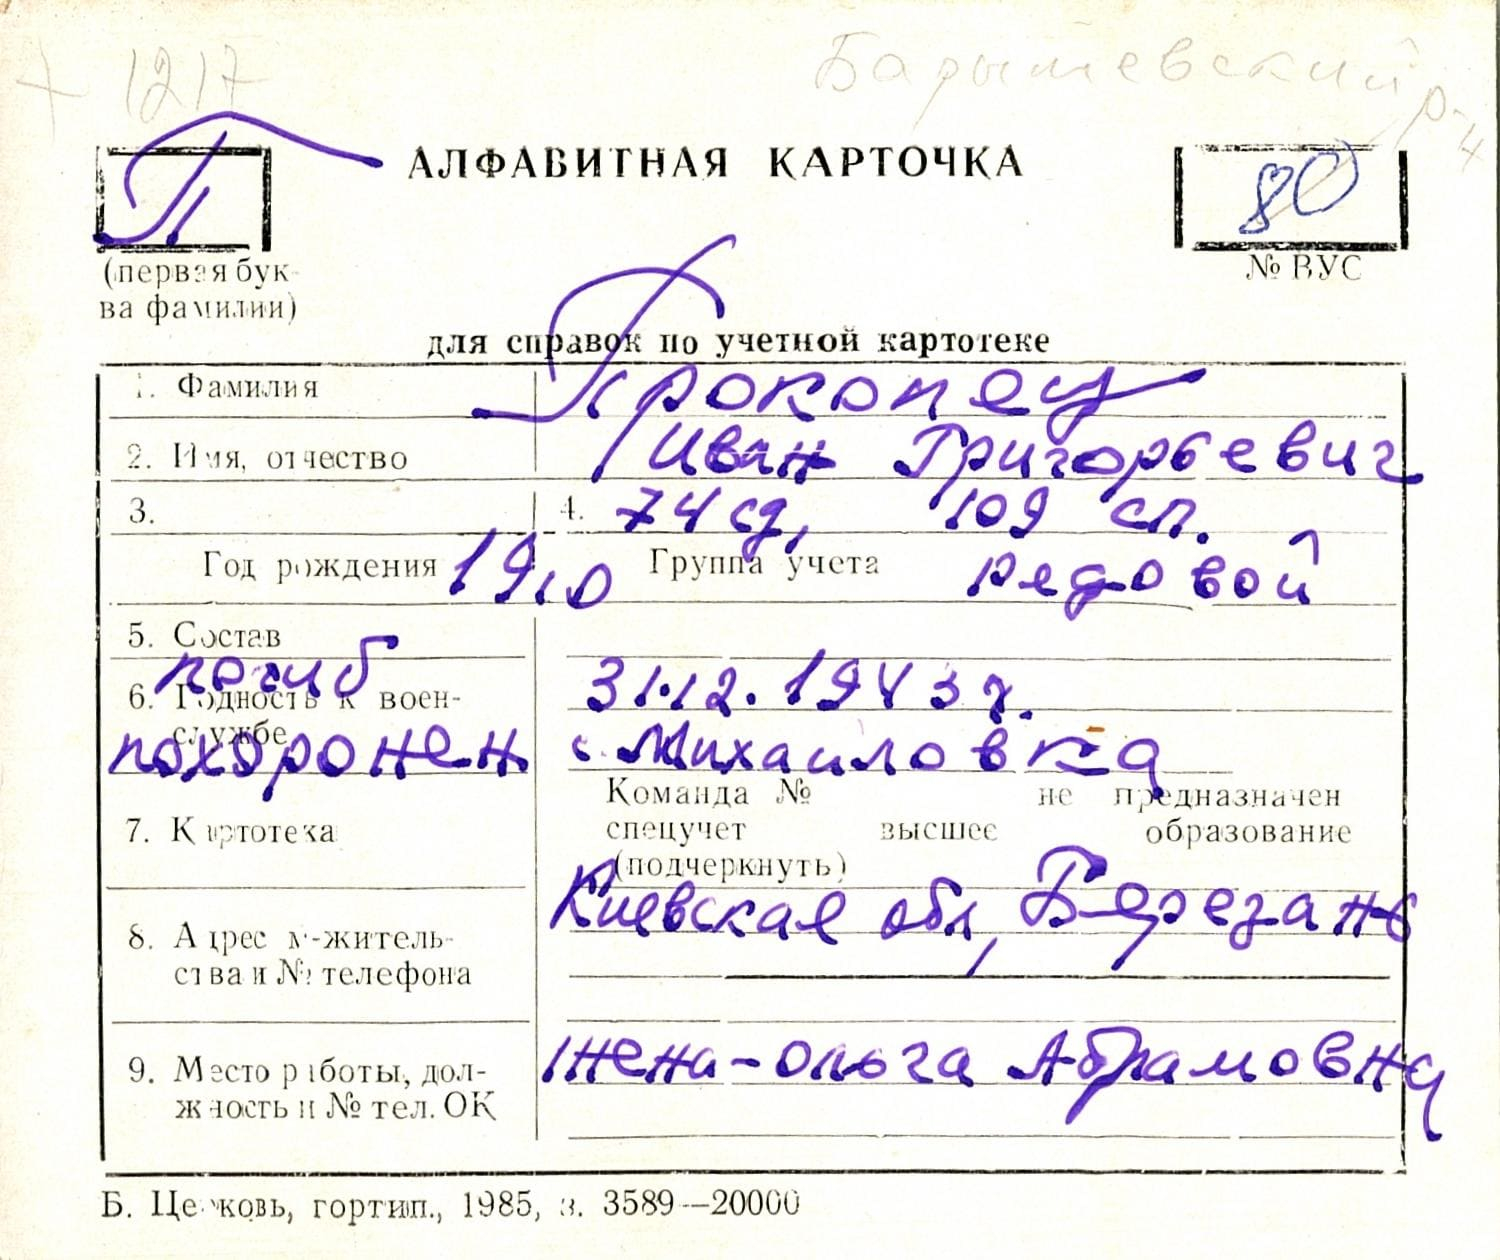 + 1217
Барышевский р-н
П
АЛФАВИТНАЯ КАРТОЧКА
80
(первая бук-
ва фамилии)
№ ВУС
для справок по учетной картотеке
1. Фамилия Прокопец
2. Имя, отчество Иван Григорьевич
3. 4. 74 сд, 109 сп.
Год рождения 1910 Группа учета рядовой
5. Состав
погиб 31.12.1943 г.
6. Годность к воен-
службе
похоронен с. Михайловка
Команда № не предназначен
7. Картотека спецучет высшее образование
(подчеркнуть)
Киевская обл, Березань
8. Адрес м-житель-
ства и № телефона
жена - Ольга Абрамовна
9. Место работы, дол-
жность и № тел. ОК
Б. Церковь, гортип., 1985, з. 3589—20000